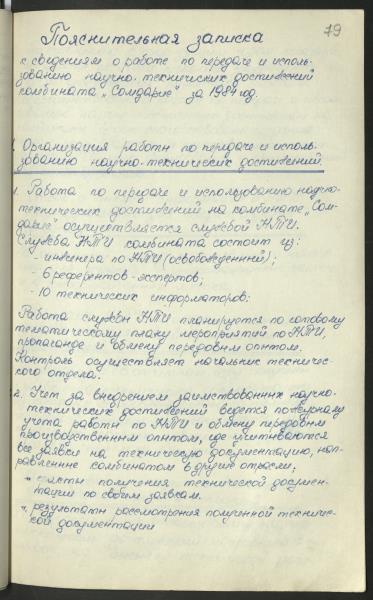 79
Пояснительная записка
к сведениям о работе по передаче и исполь-
зованию научно-технических достижений
комбината „Сомдарие" за 1984 год.
I. Организация работы по передаче и исполь-
зованию научно-технических достижений.
1. Работа по передаче и использованию научно-
технических достижений на комбинате „Сом-
дарие" осуществляется службой НТИ.
Служба НТИ комбината состоит из:
- инженера по НТИ (освобожденный);
- 6 референтов-экспертов;
- 10 технических информаторов;
Работа службы НТИ планируется по годовому
тематическому плану мероприятий по НТИ,
пропаганде и обмену передовым опытом.
Контроль осуществляет начальник техничес-
кого отдела.
2. Учет за внедрением заимствованных научно-
технических достижений ведется по журналу
учета работы по НТИ и обмену передовым
производственным опытом, где учитываются
все заявки на техническую документацию, нап-
равленные комбинатом в другие отрасли;
" факты получения технической докумен-
тации по своим заявкам.
", результаты рассмотрения полученной техничес-
кой документации